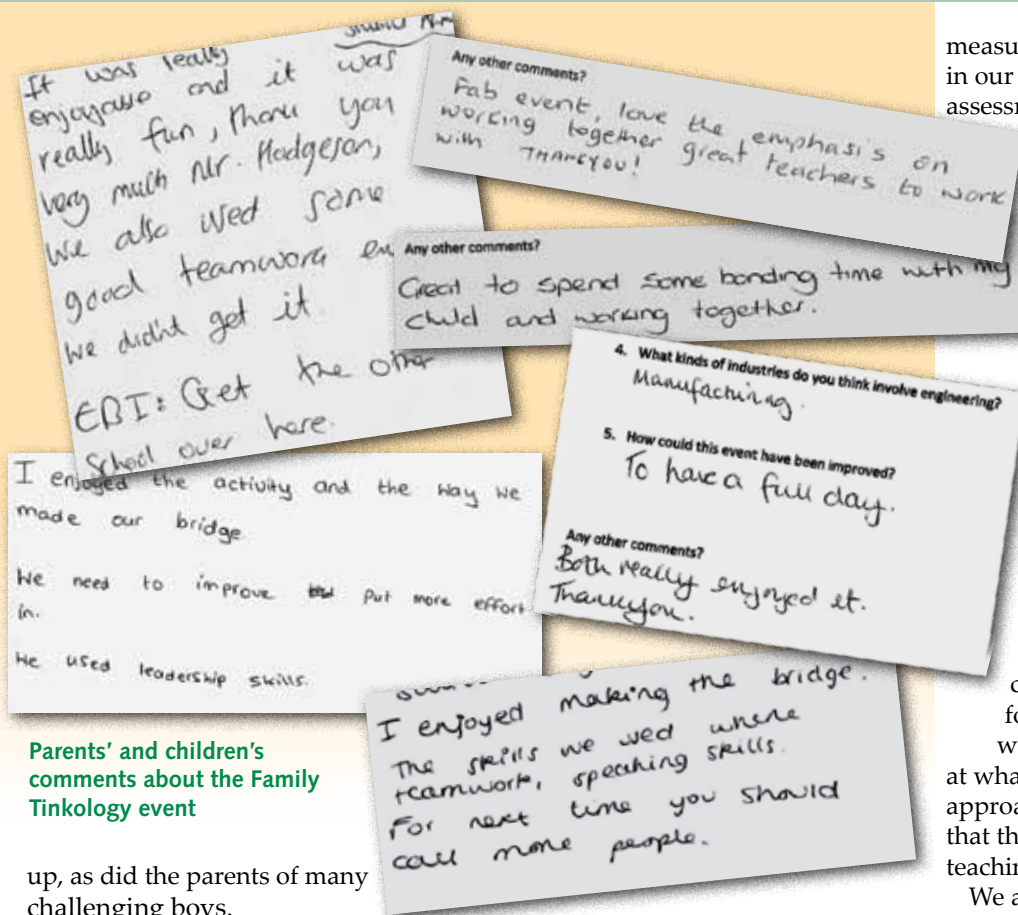 It was really
enjoyable and it was
really fun, thank you
very much Mr. Hodgeson,
we also used some
good teamwork
we didn't get it.
EBI: Get the other
School over here.
Any other comments?
Fab event, love the emphasis on
working together great teachers to work
with THANKYOU!
Any other comments?
Great to spend some bonding time with my
child and working together.
4. What kinds of industries do you think involve engineering?
Manufacturing.
5. How could this event have been improved?
To have a full day.
Any other comments?
Both really enjoyed it.
Thankyou.
I enjoyed the activity and the way we
made our bridge
We need to improve put more effort
in.
We used leadership skills.
I enjoyed making the bridge.
The skills we used where
teamwork, speaking skills.
For next time you should
call more people.
Parents' and children's
comments about the Family
Tinkology event
up, as did the parents of many
challenging boys.
measu
in our
assessm
c
fo
w
at wha
approa
that th
teachin
We a